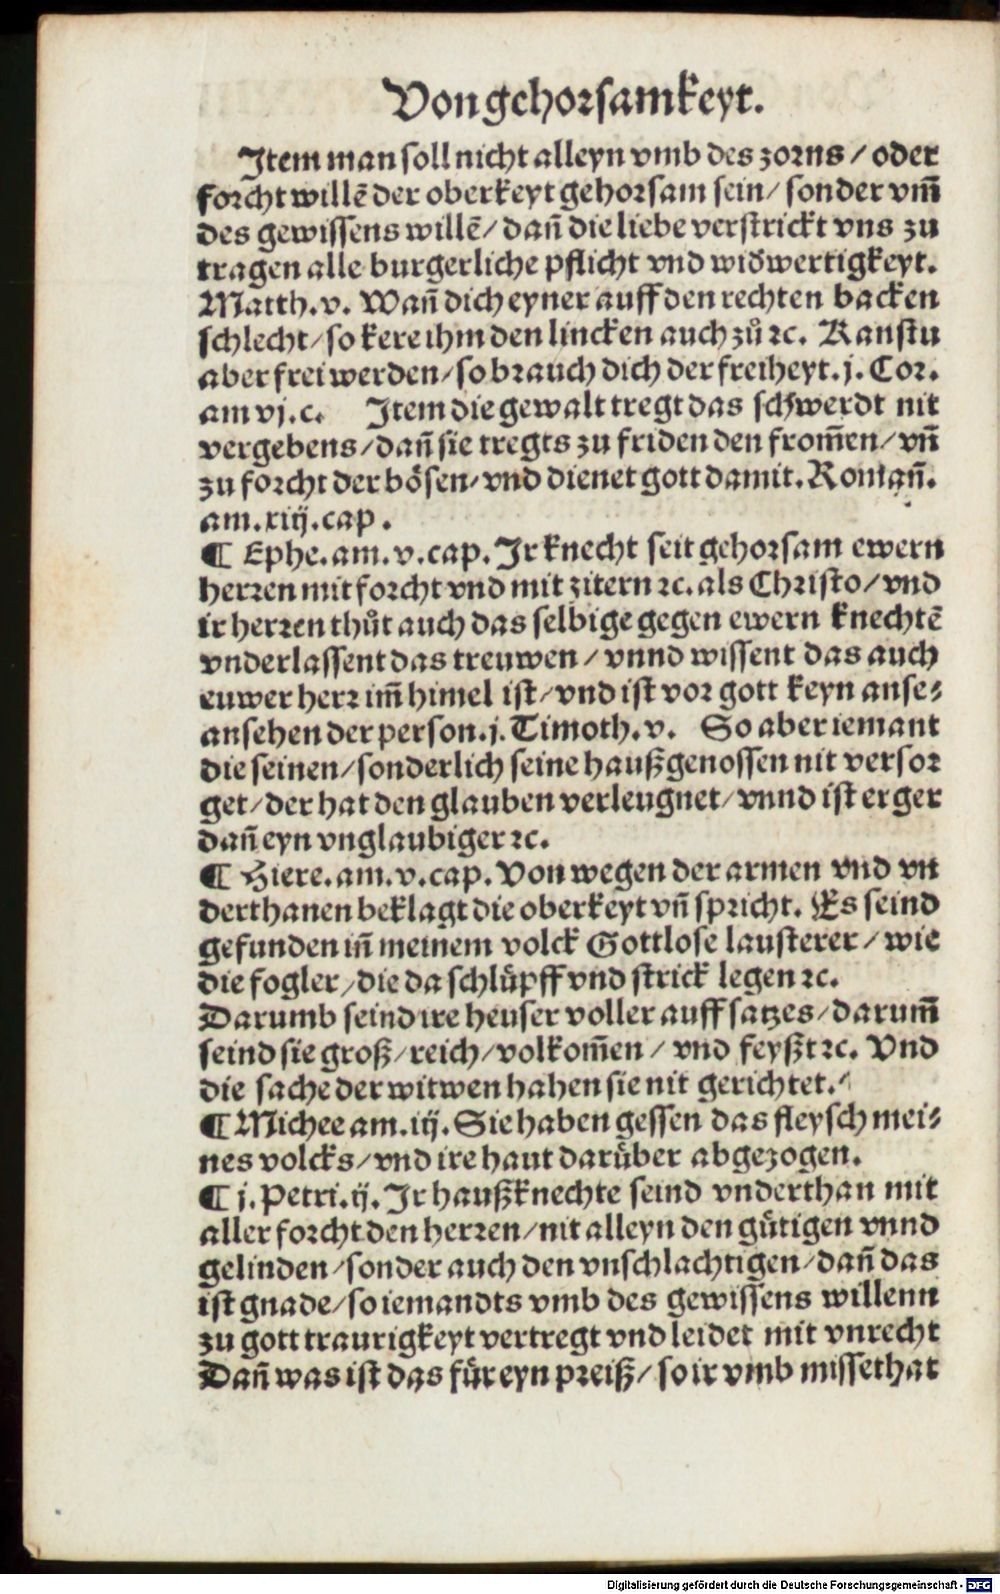 Von gehorsamkeyt.
Item man soll nicht alleyn vmb des zorns / oder
forcht willẽ der oberkeyt gehorsam sein / sonder vm̃
des gewissens willẽ / dañ die liebe verstrickt vns zu
tragen alle burgerliche pflicht vnd wid̕wertigkeyt.
Matth. v. Wañ dich eyner auff den rechten backen
schlecht / so kere ihm den lincken auch zů ꝛc. Kanstu
aber frei werden / so brauch dich der freiheyt. j. Cor.
am vj. c. Item die gewalt tregt das schwerdt nit
vergebens / dañ sie tregts zu friden den from̃en / vñ
zu forcht der bösen / vnd dienet gott damit. Romañ.
am. xiij. cap.
¶ Ephe. am. v. cap. Ir knecht seit gehorsam ewern
herren mit forcht vnd mit zitern ꝛc. als Christo / vnd
ir herren thůt auch das selbige gegen ewern knechtẽ
vnderlassent das treuwen / vnnd wissent das auch
euwer herr im̃ himel ist / vnd ist vor gott keyn anse-
ansehen der person. j. Timoth. v. So aber iemant
die seinen / sonderlich seine haußgenossen nit versor
get / der hat den glauben verleugnet / vnnd ist erger
dañ eyn vnglaubiger ꝛc.
¶ Hiere. am. v. cap. Von wegen der armen vnd vn
derthanen beklagt die oberkeyt vñ spricht. Es seind
gefunden iñ meinem volck Gottlose lausterer / wie
die fogler / die da schlüpff vnd strick legen ꝛc.
Darumb seind ire heuser voller auffsatzes / darum̃
seind sie groß / reich / volkom̃en / vnd feyßt ꝛc. Vnd
die sache der witwen hahen sie nit gerichtet.
¶ Michee am. iij. Sie haben gessen das fleysch mei-
nes volcks / vnd ire haut darüber abgezogen.
¶ j. Petri. ij. Ir haußknechte seind vnderthan mit
aller forcht den herren / nit alleyn den gütigen vnnd
gelinden / sonder auch den vnschlachtigen / dañ das
ist gnade / so iemandts vmb des gewissens willenn
zu gott traurigkeyt vertregt vnd leidet mit vnrecht
Dañ was ist das für eyn preiß / so ir vmb missethat
Digitalisierung gefördert durch die Deutsche Forschungsgemeinschaft - DFG